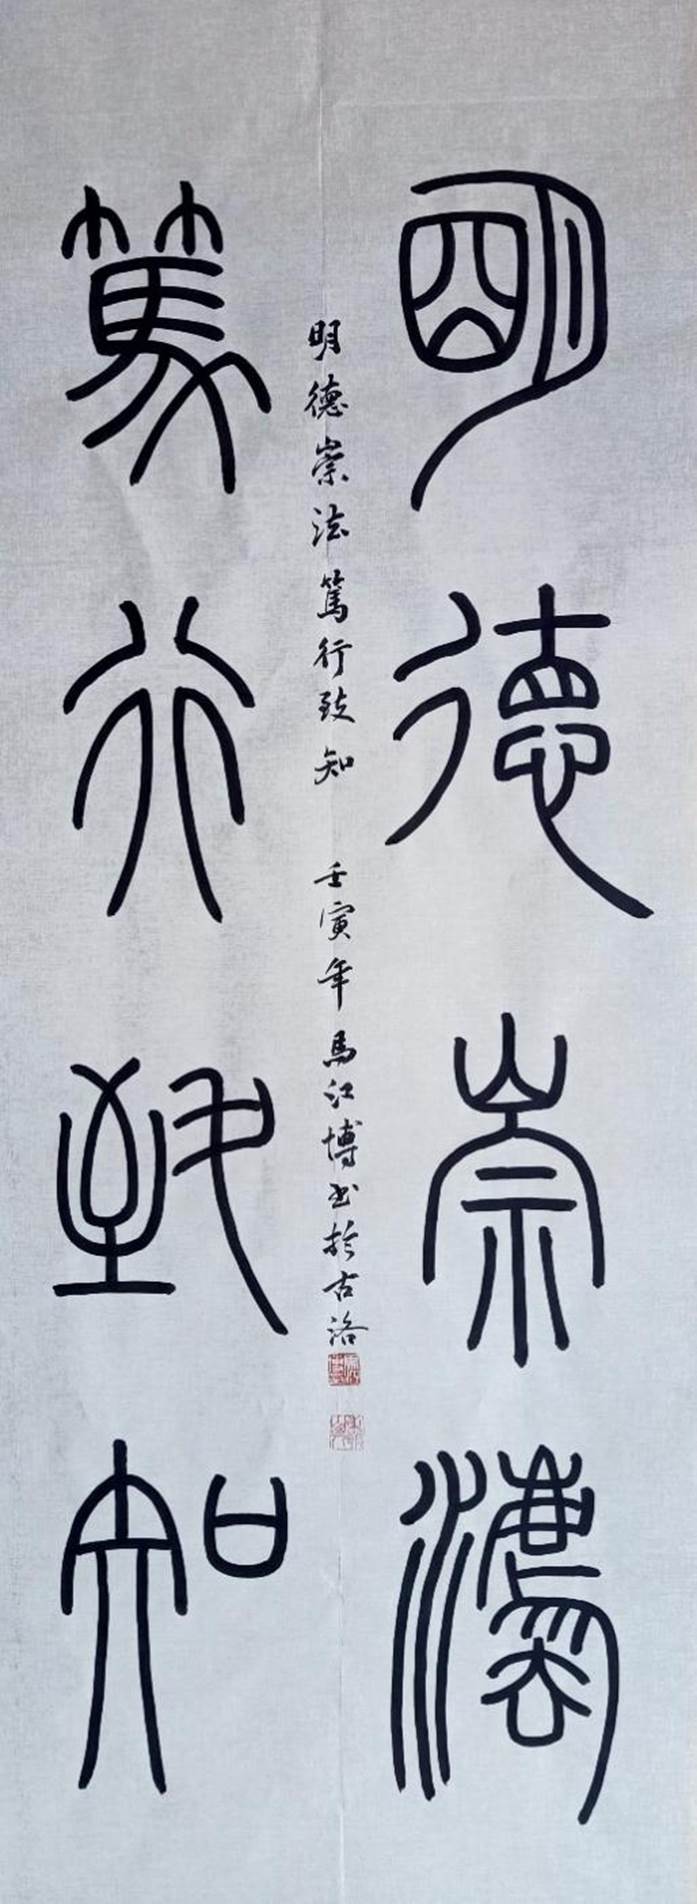 明德崇灋
篤行致知
明德崇法篤行致知 壬寅年馬江博书於古洛